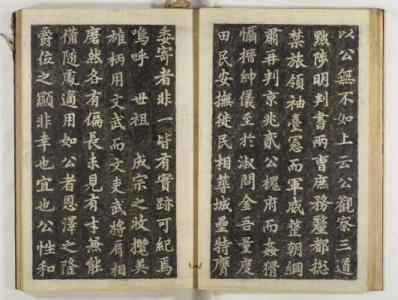 以公無不如上云公觀察三道
黜陟明判書兩曹庶務釐都揔
禁旅領袖臺憲而軍威整朝綱
肅并判京兆貳公槐府而姦猾
懾搢紳儀至於淑問金吾量度
田民安撫徙民相葬城壘特膺
委寄者非一皆有實跡可紀焉
嗚呼 世祖 成宗之收攬英
雄柄用文武而文吏武將肩相
磨然各有偏長未見有才兼能
備隨處適用如公者恩澤之隆
爵位之顯非幸也宜也公性和